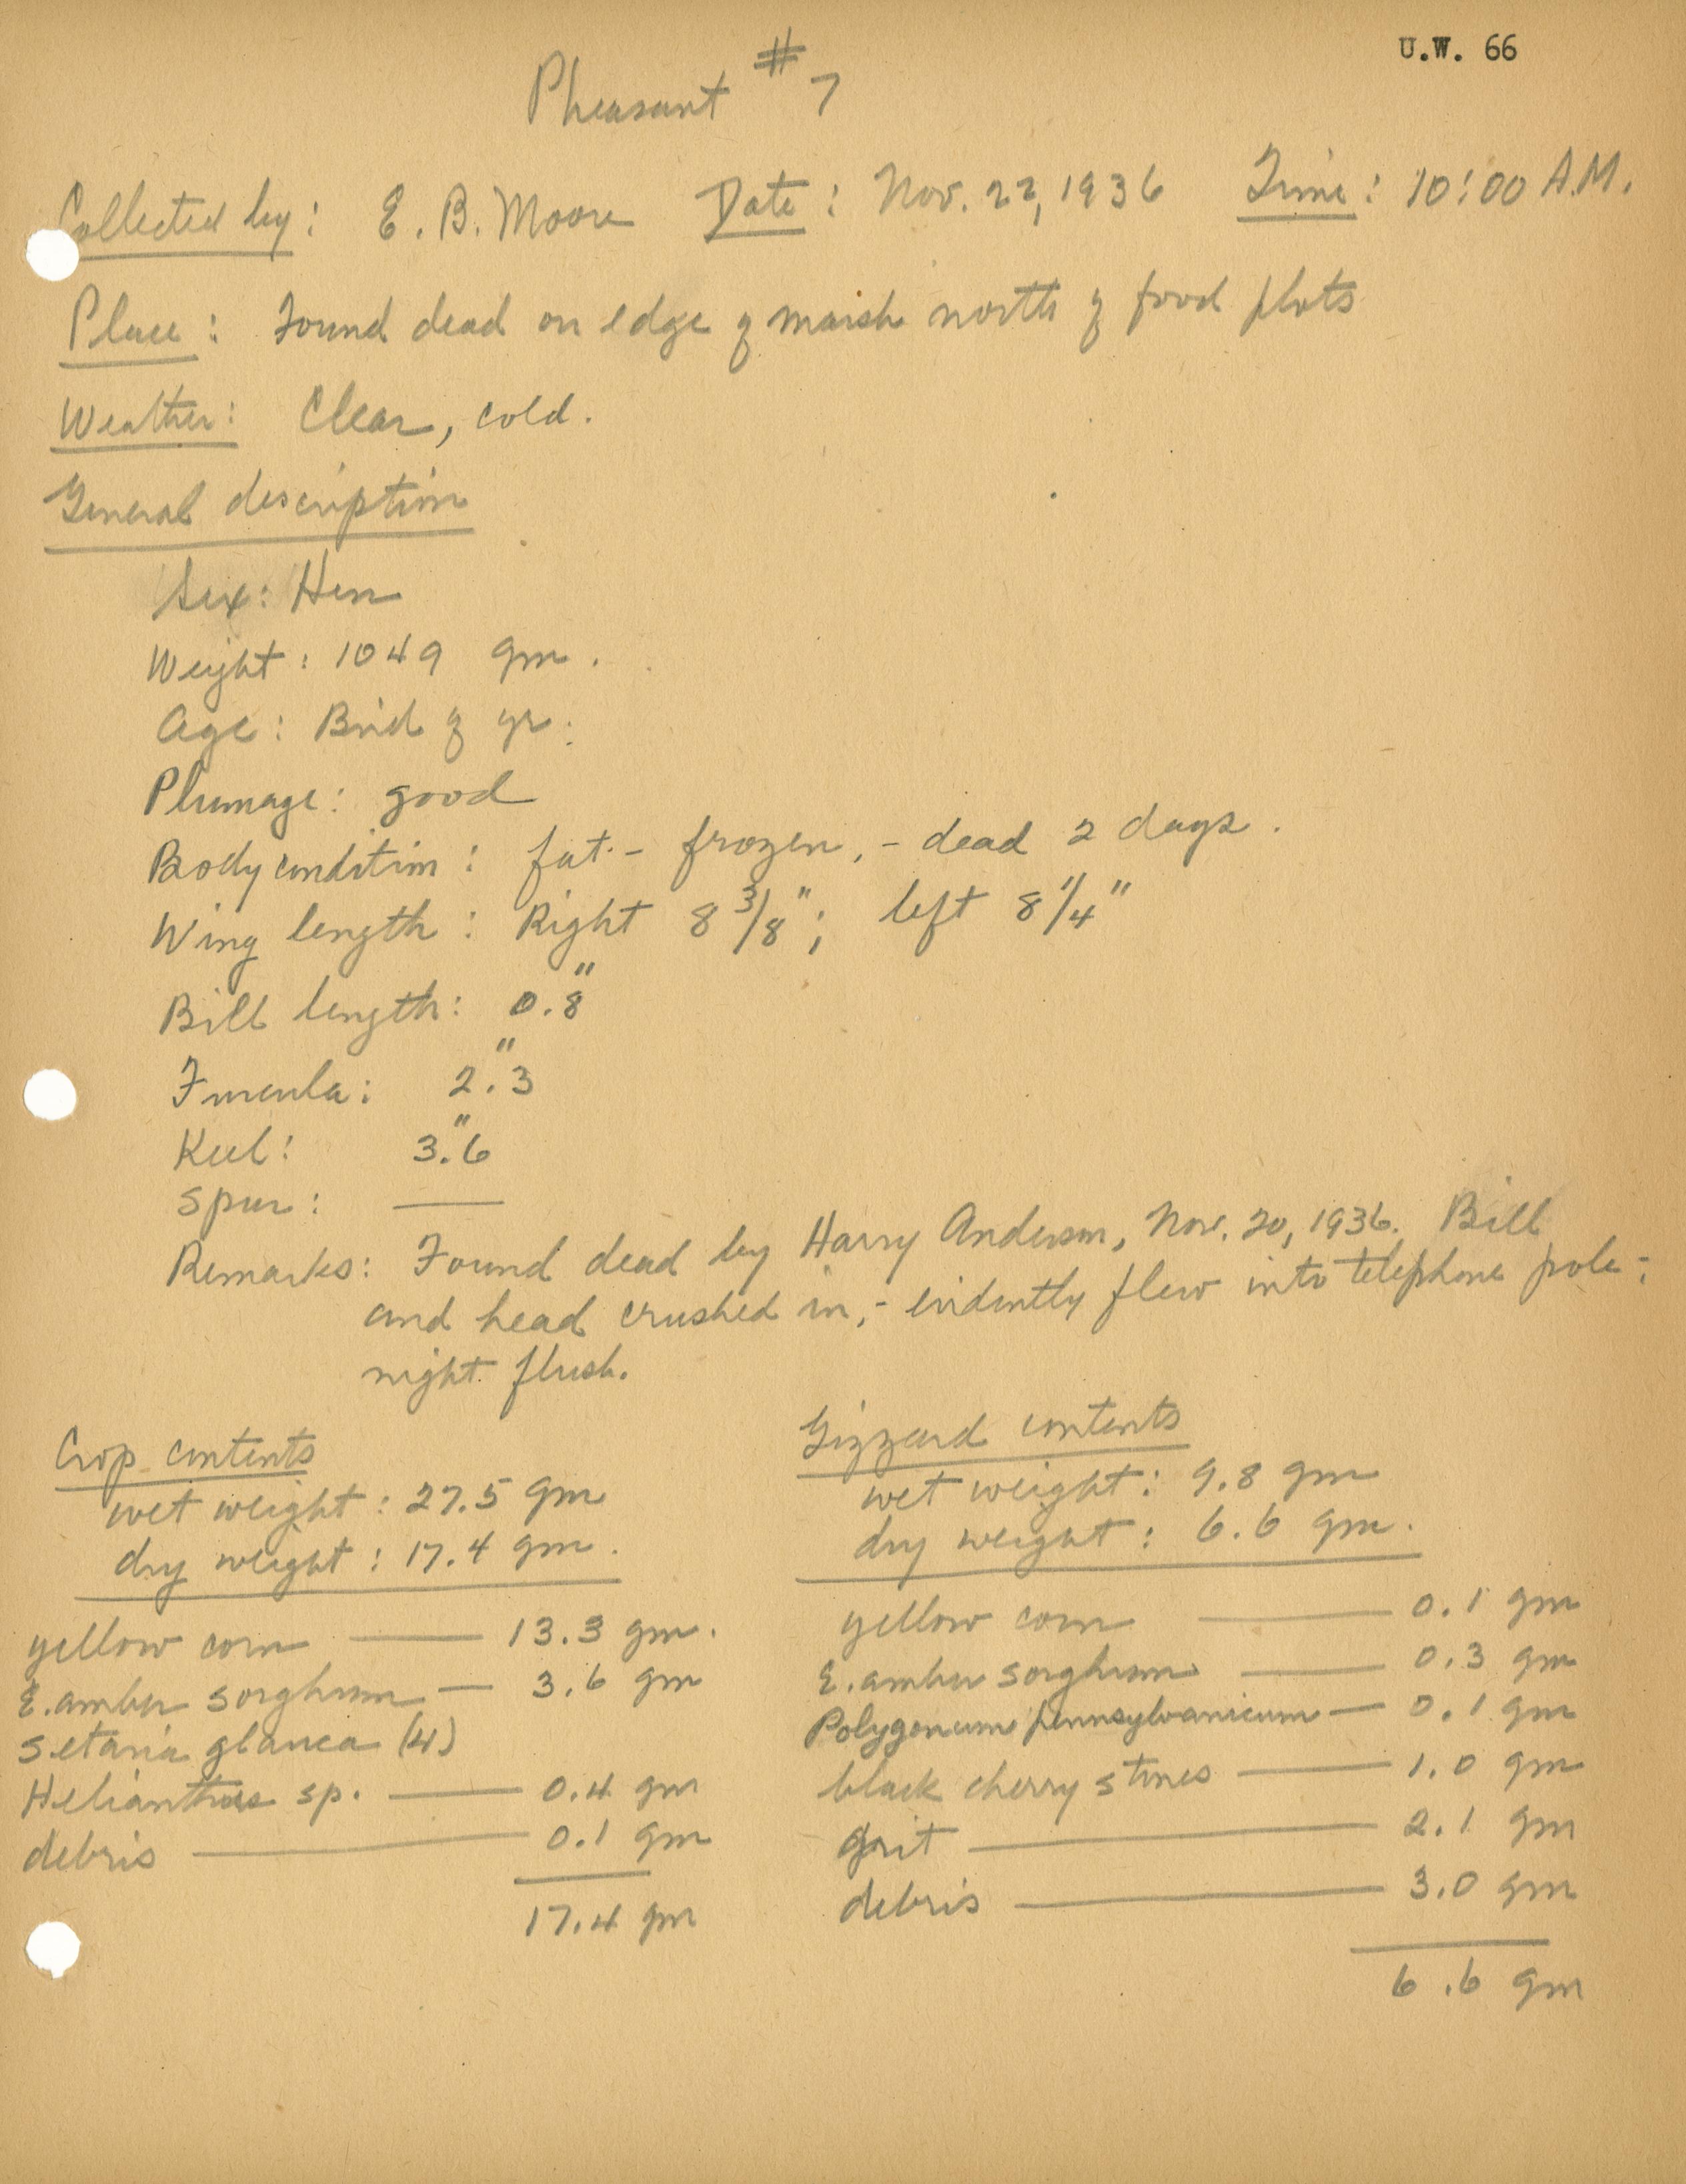 U.W. 66
Pheasant # 7
Collected by: E. B. Moore Date: Nov. 22, 1936 Time: 10:00 A.M.
Place: Found dead on edge of marsh north of food plots
Weather: Clear, cold.
General description
Sex: Hen
Weight: 1049 gm.
Age: Bird of yr.
Plumage: good
Body condition: fat - frozen, - dead 2 days.
Wing length: Right 8 3/8"; left 8 1/4"
Bill length: 0.8"
Fmcula: 2."3
Keel: 3."6
Spur: ——
Remarks: Found dead by Harry Anderson, Nov. 20, 1936. Bill
and head crushed in, - evidently flew into telephone pole -;
night flush.
Crop contents
wet weight: 27.5 gm
dry weight: 17.4 gm.
yellow corn —— 13.3 gm.
E. amber sorghum — 3.6 gm
Setaria glauca (4)
Helianthus sp. —— 0.4 gm
debris —— 0.1 gm
17.4 gm
Gizzard contents
wet weight: 9.8 gm
dry weight: 6.6 gm.
yellow corn —— 0.1 gm
E. amber sorghum —— 0.3 gm
Polygonum pennsylvanicum — 0.1 gm
black cherry stones —— 1.0 gm
grit —— 2.1 gm
debris —— 3.0 gm
6.6 gm